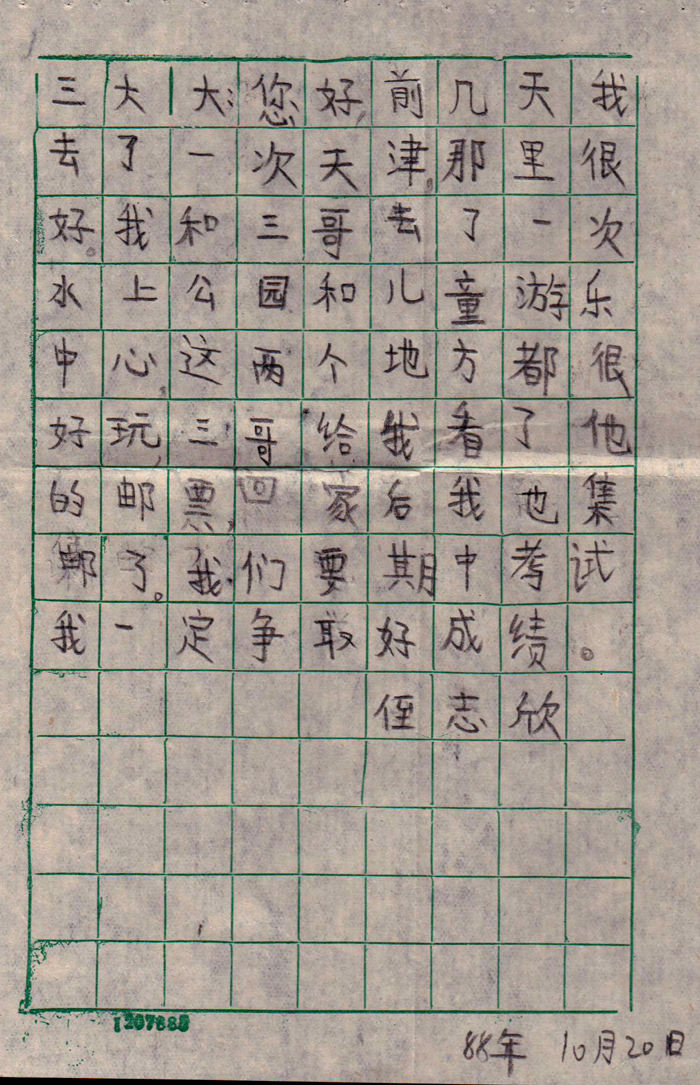 三大大:您好,前几天我
去了一次天津,那里很
好。我和三哥去了一次
水上公园和儿童游乐
中心,这两个地方都很
好玩,三哥给我看了他
的邮票,回家后我也集
邮了。我们要期中考试
我一定争取好成绩。
侄志欣
1207885
88年 10月20日